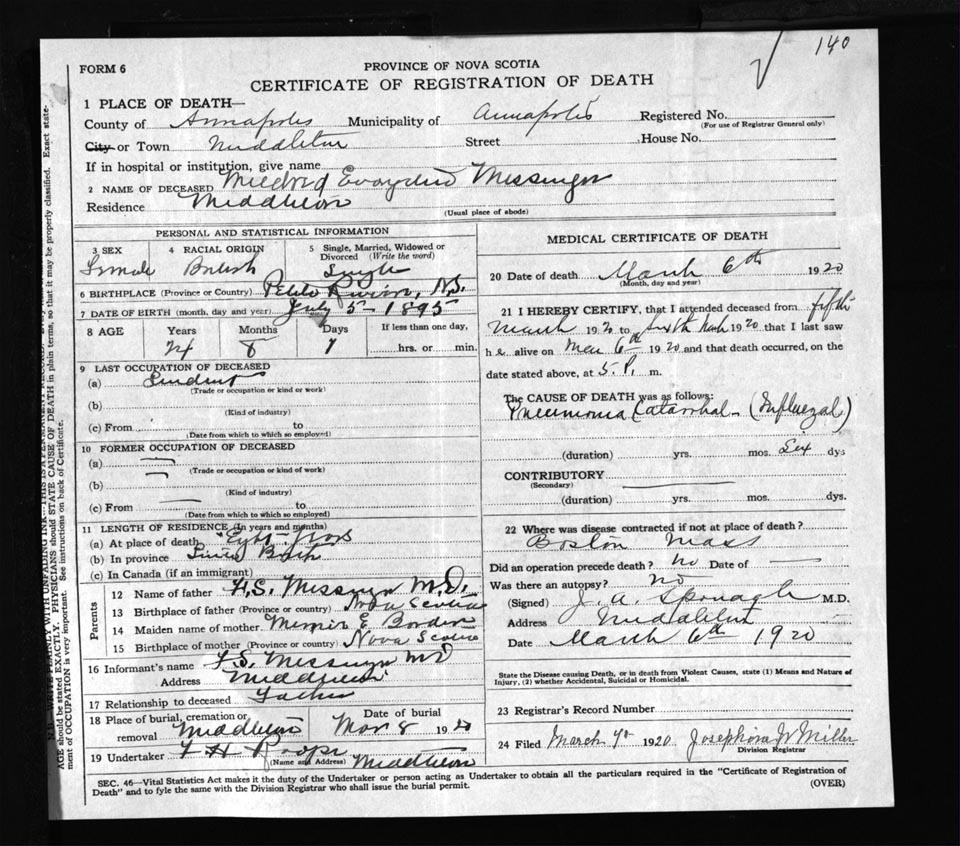 140
FORM 6
PROVINCE OF NOVA SCOTIA
CERTIFICATE OF REGISTRATION OF DEATH
1 PLACE OF DEATH—
County of Annapolis Municipality of Annapolis Registered No.
(For use of Registrar General only)
City or Town Middleton Street House No.
If in hospital or institution, give name
2 NAME OF DECEASED Mildred Messinger
Residence Middleton
(Usual place of abode)
PERSONAL AND STATISTICAL INFORMATION
3 SEX 4 RACIAL ORIGIN 5 Single, Married, Widowed or Divorced (Write the word)
Female British Single
6 BIRTHPLACE (Province or Country) N.S.
7 DATE OF BIRTH (month, day and year) July 5 - 1895
8 AGE Years Months Days If less than one day,
24 8 1 hrs. or min.
9 LAST OCCUPATION OF DECEASED
(a) Student
(Trade or occupation or kind or work)
(b)
(Kind of industry)
(c) From to
(Date from which to which so employed)
10 FORMER OCCUPATION OF DECEASED
(a)
(Trade or occupation or kind of work)
(b)
(Kind of industry)
(c) From to
(Date from which to which so employed)
11 LENGTH OF RESIDENCE (In years and months)
(a) At place of death
(b) In province Since Birth
(c) In Canada (if an immigrant)
Parents
12 Name of father F.S. Messinger M.D.
13 Birthplace of father (Province or country) Nova Scotia
14 Maiden name of mother E. Borden
15 Birthplace of mother (Province or country) Nova Scotia
16 Informant's name F.S. Messinger MD
Address Middleton
17 Relationship to deceased Father
18 Place of burial, cremation or removal Middleton Date of burial Mar 8 1920
19 Undertaker
(Name and Address) Middleton
MEDICAL CERTIFICATE OF DEATH
20 Date of death March 6th 1920
(Month, day and year)
21 I HEREBY CERTIFY, that I attended deceased from fifth
March 1920 to sixth March 1920 that I last saw
h alive on Mar 6th 1920 and that death occurred, on the
date stated above, at 5. P. m.
The CAUSE OF DEATH was as follows:
Pneumonia Catarrhal - (Influenzal)
(duration) yrs. mos. Six dys
CONTRIBUTORY
(Secondary)
(duration) yrs. mos. dys.
22 Where was disease contracted if not at place of death?
Boston Mass
Did an operation precede death? no Date of
Was there an autopsy? no
(Signed) J. A. Sponagle M.D.
Address Middleton
Date March 6th 1920
State the Disease causing Death, or in death from Violent Causes, state (1) Means and Nature of
Injury, (2) whether Accidental, Suicidal or Homicidal.
23 Registrar's Record Number
24 Filed March 1920 Miller
Division Registrar
SEC. 46—Vital Statistics Act makes it the duty of the Undertaker or person acting as Undertaker to obtain all the particulars required in the "Certificate of Registration of
Death" and to fyle the same with the Division Registrar who shall issue the burial permit.
(OVER)
AGE should be stated EXACTLY. PHYSICIANS should STATE CAUSE OF DEATH in plain terms, so that it may be properly classified. Exact state-
ment of OCCUPATION is very important. See instructions on back of Certificate.